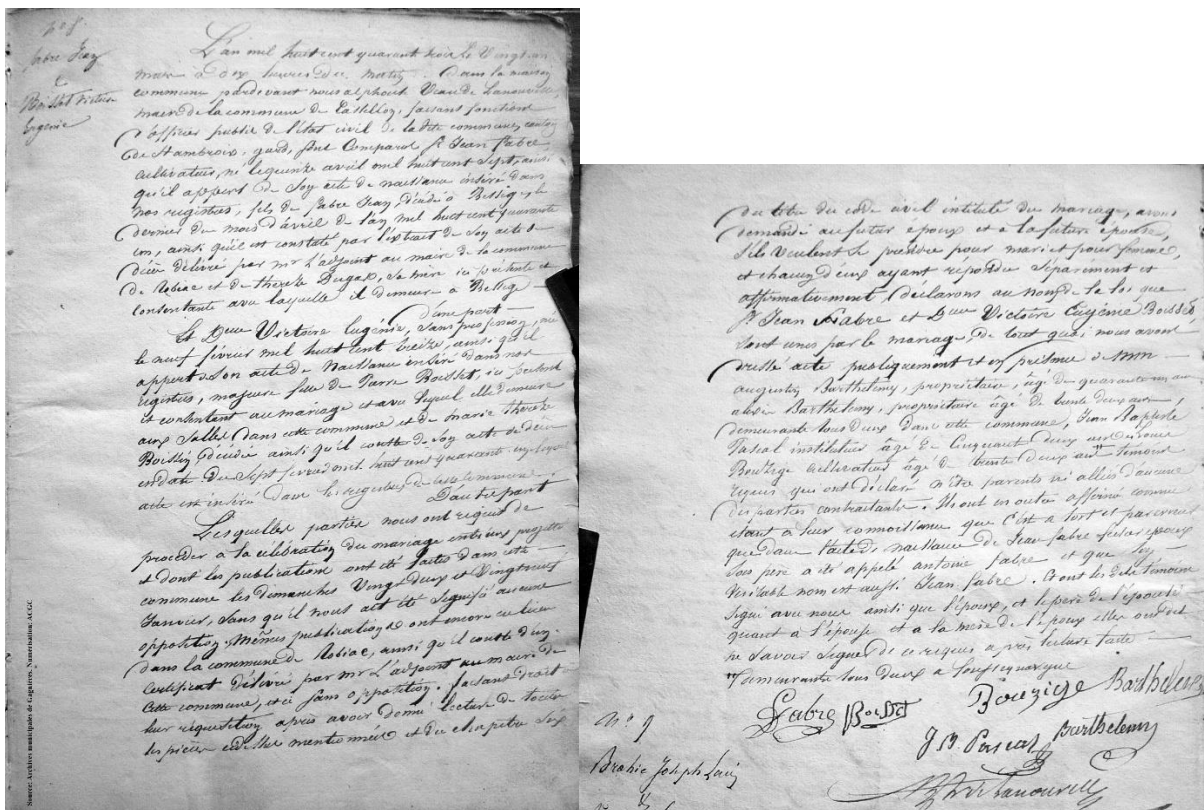 N° 8
fabre Jean
&
Boissét Victoire
Eugénie
L'an mil huit cent quarante trois le Vingt un
mars à dix heures du matin. Dans la maison
commune pardevant nous alphonse de Lanouvelle,
maire de la commune de Castillon, faisant fonctions
d'officier public de l'état civil de la dite commune, canton
de St ambroix, gard, sont Comparus Sr Jean fabre
cultivateur, né le quinze avril mil huit cent sept, ainsi
qu'il appert de Son acte de naissance inséré dans
nos registres, fils de fabre Jean, décédé à Bessège, le
dernier du mois d'avril de l'an mil huit cent quarante
un, ainsi qu'il est constaté par l'extrait de Son acte de
décès délivré par mr L'adjoint au maire de la commune
de Robiac et de thérèse Dugas, Sa mère ici présente et
consentante avec laquelle il demeure à Bessège
D'une part
Et Dlle Victoire Eugénie, Sans profession, née
le neuf février mil huit cent treize, ainsi qu'il
appert de Son acte de Naissance inséré dans nos
registres, majeure fille de Pierre Boissét, ici présent
et consentant au mariage et avec lequel elle demeure
aux Salles dans cette commune et de marie thérèse
Boissin, décédée ainsi qu'il conste de Son acte de décès
en date du Sept mil huit cent quarante
acte est inséré dans les registres de cette commune.
D'autre part
Lesquelles parties nous ont requis de
procéder à la célébration du mariage entr'eux projetté
et dont les publications ont été faites dans cette
commune les dimanches Vingt deux et Vingt neuf
Janvier, Sans qu'il nous ait été Signifié aucune
opposition. Mêmes publications ont encore eu lieu
dans la commune de Robiac, ainsi qu'il conste d'un
certificat délivré par mr L'adjoint au maire de
cette commune, et ici Sans opposition. faisant droit
à leur réquisition après avoir donné lecture de toutes
les pièces ci dessus mentionnées et du chapitre Six
du titre du code civil intitulé du mariage, avons
demandé au futur époux et à la future épouse,
S'ils veulent Se prendre pour mari et pour femme,
et chacun d'eux ayant répondu Séparément et
affirmativement, déclarons au nom de la loi que
Sr Jean Fabre et Dlle Victoire Eugénie Boissét
Sont unis par le mariage, de tout quoi nous avons
dressé acte publiquement et en présence de Mrs
augustin Barthelemy, propriétaire, âgé de quarante un ans
alexis Barthelemy, propriétaire âgé de trente deux ans,
demeurants tous deux dans cette commune, Jean Baptiste
Pascal instituteur âgé de Cinquante deux ans
Bouzige cultivateur âgé de trente deux ans témoins
requis qui ont déclaré n'être parents ni alliés d'aucune
des parties contractantes. Ils ont en outre affirmé comme
étant à leur connoissance que c'est à tort et par erreur
que dans l'acte de naissance de Jean fabre futur époux
Son père a été appelé antoine fabre et que Son
Véritable nom est aussi Jean fabre. Et ont les dits témoins
Signé avec nous ainsi que l'époux, et le père de l'épouse
quant à l'épouse et à la mère de l'époux elles ont dit
ne Savoir Signer de ce requis après lecture faite
demeurants tous deux à
Fabre Boissét Bouzige Barthelemy
J B. Pascal Barthelemy
de Lanouvelle
N° 9
Brahic Joseph Louis
&
Source: Archives municipales de Gagnières. Numérisation: ACGC